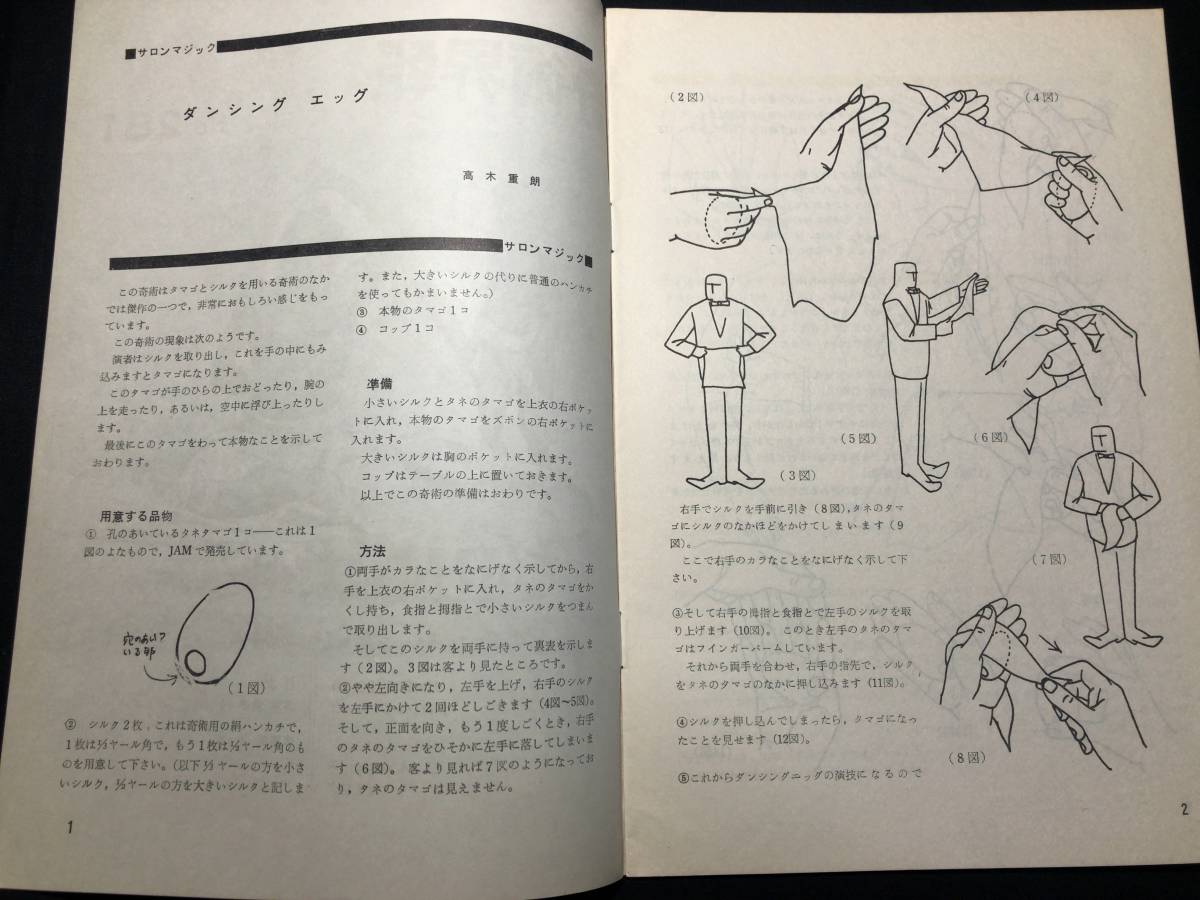 ■サロンマジック
ダンシング エッグ
高木重朗
サロンマジック■
この奇術はタマゴとシルクを用いる奇術のなか
では傑作の一つで，非常におもしろい感じをもっ
ています。
この奇術の現象は次のようです。
演者はシルクを取り出し，これを手の中にもみ
込みますとタマゴになります。
このタマゴが手のひらの上でおどったり，腕の
上を走ったり，あるいは，空中に浮び上ったりし
ます。
最後にこのタマゴをわって本物なことを示して
おわります。
用意する品物
① 孔のあいているタネタマゴ１コ――これは１
図のよなもので，JAMで発売しています。
穴のあいて
いる部
（１図）
② シルク２枚。これは奇術用の絹ハンカチで，
１枚は⅓ヤール角で，もう１枚は½ヤール角のも
のを用意して下さい。（以下⅓ヤールの方を小さ
いシルク，½ヤールの方を大きいシルクと記しま
す。また，大きいシルクの代りに普通のハンカチ
を使ってもかまいません。）
③ 本物のタマゴ１コ
④ コップ１コ
準備
小さいシルクとタネのタマゴを上衣の右ポケッ
トに入れ，本物のタマゴをズボンの右ポケットに
入れます。
大きいシルクは胸のポケットに入れます。
コップはテーブルの上に置いておきます。
以上でこの奇術の準備はおわりです。
方法
①両手がカラなことをなにげなく示してから，右
手を上衣の右ポケットに入れ，タネのタマゴをか
くし持ち，食指と拇指とで小さいシルクをつまん
で取り出します。
そしてこのシルクを両手に持って裏表を示しま
す（２図）。３図は客より見たところです。
②やや左向きになり，左手を上げ，右手のシルク
を左手にかけて２回ほどしごきます（4図〜5図）。
そして，正面を向き，もう１度しごくとき，右手
のタネのタマゴをひそかに左手に落してしまいま
す（６図）。客より見れば７図のようになってお
り，タネのタマゴは見えません。
1
（２図）
（４図）
（５図）
（６図）
（３図）
（７図）
右手でシルクを手前に引き（８図），タネのタマ
ゴにシルクのなかほどをかけてしまいます（９
図）。
ここで右手のカラなことをなにげなく示して下
さい。
③そして右手の拇指と食指とで左手のシルクを取
り上げます（10図）。このとき左手のタネのタマ
ゴはフインガーパームしています。
それから両手を合わせ，右手の指先で，シルク
をタネのタマゴのなかに押し込みます（11図）。
④シルクを押し込んでしまったら，タマゴになっ
たことを見せます（12図）。
（８図）
⑤これからダンシングエッグの演技になるので
2